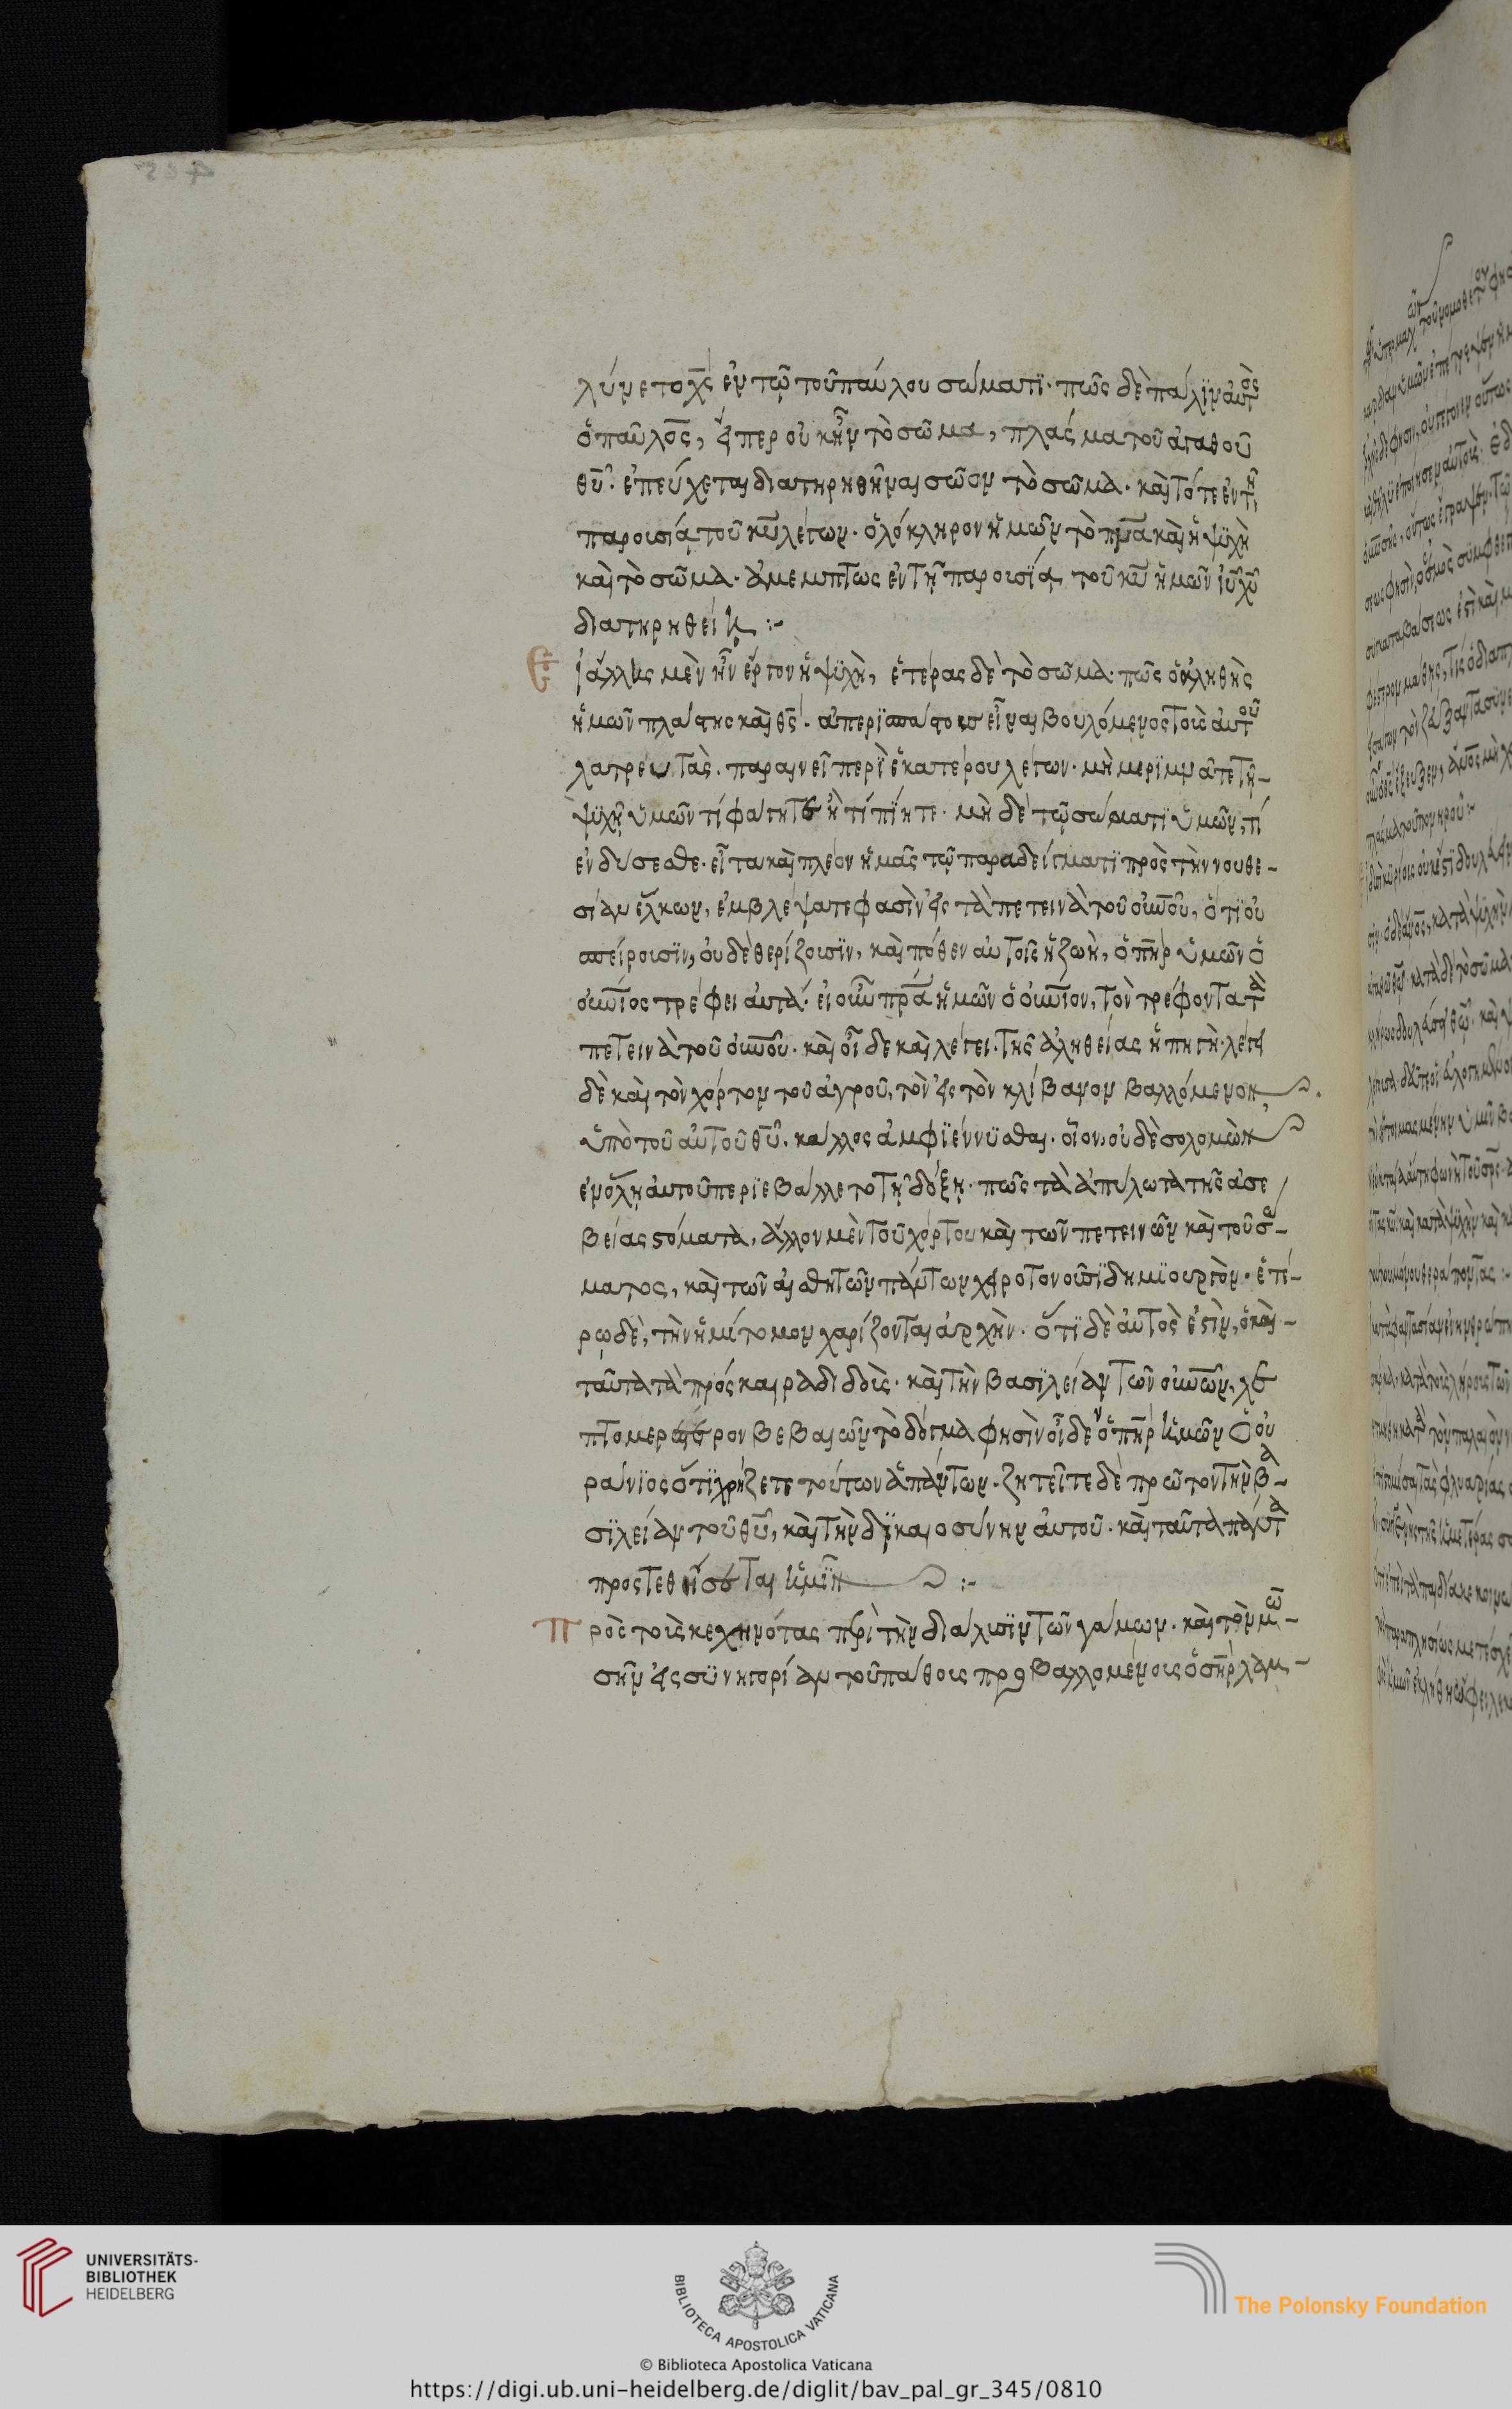 λύνετο χς ἐν τῷ τοῦ παύλου σώματϊ· πῶς δὲ πάλϊν αὐτὸς
ὁ παῦλος, εἴπερ οὐκ ἦν τὸ σῶμα, πλάσμα τοῦ ἀγαθοῦ
θυ· ἐπεύχεται διατηρηθῆναι σῶον τὸ σῶμα· καὶ τότε ἐν τῇ
παρουσίᾳ τοῦ κυ λέγων· ὁλόκληρον ἡμῶν τὸ πνα καὶ ἡ ψϋχὴ
καὶ τὸ σῶμα· ἀμέμπτως ἐν τῇ παρουσίᾳ τοῦ κυ ἡμῶν ιυ χυ
διατηρηθείη :-
Εἰ ἄλλης μὲν ἦν ἔργον ἡ ψϋχὴ, ἑτέρας δὲ τὸ σῶμα· πῶς ὁ ἀληθὴς
ἡμῶν πλάστης καὶ θς· ἀπερϊσπάστους εἶναι βουλόμενος τοὺς αὐτοῦ
λατρευτὰς· παραινεῖ περὶ ἑκατέρου λέγων· μὴ μερϊμνᾶτε τῇ
ψϋχῇ ὑμῶν τί φάγητε ἢ τί πίητε· μὴ δὲ τῷ σώματϊ ὑμῶν, τί
ἐνδύσεσθε· εἶτα καὶ πλέον ἡμᾶς τῷ παραδείγματϊ πρὸς τὴν νουθε-
σίαν ἕλκων, ἐμβλέψατε φασὶν εἰς τὰ πετεινὰ τοῦ οὐνοῦ, ὅτϊ οὐ
σπείρουσϊν, οὐδὲ θερίζουσϊν, καὶ πόθεν αὐτοῖς ἡ ζωὴ, ὁ πηρ ὑμῶν ὁ
οὐνιος τρέφει αὐτά· εἰ οὖν πρα ἡμῶν ὁ οὐνιον, τὸν τρέφοντα τὰ
πετεινὰ τοῦ οὐνοῦ· καὶ οἶδε καὶ λέγει· τῆς ἀληθείας ἡ πηγὴ· λέγει
δὲ καὶ τὸν χόρτον τοῦ ἀγροῦ, τὸν εἰς τὸν κλίβανον βαλλόμενον
ὑπὸ τοῦ αὐτοῦ θυ· κάλλος ἀμφϊέννϋσθαι· οἷον οὐδὲ σολομὼν
ἐν ὅλῃ αὐτοῦ περϊεβάλλετο τῇ δόξῃ· πῶς τὰ ἀπύλωτα τῆς ἀσε
βείας στόματα, ἄλλον μὲν τοῦ χόρτου καὶ τῶν πετεινῶν καὶ τοῦ σώ-
ματος, καὶ τῶν αἰσθητῶν πάντων χειροτονοῦσϊ δημϊουργὸν· ἑτέ-
ρῳ δὲ, τὴν ἡμίτομον χαρίζονται ἀρχὴν· ὅτϊ δὲ αὐτὸς ἐστὶν, ὁ καὶ
ταῦτα τὰ πρόσκαιρα διδοὺς· καὶ τὴν βασϊλείαν τῶν οὐνῶν, λε
πτομερέστερον βεβαιῶν τὸ δόγμα φησὶν οἶδεν ὁ πηρ ἡμῶν ὁ οὐ
ράνϊος ὅτϊ χρῄζετε τούτων ἁπάντων· ζητεῖτε δὲ πρῶτον τὴν βα-
σϊλείαν τοῦ θυ, καὶ τὴν δϊκαιοσύνην αὐτοῦ· καὶ ταῦτα πάντα
προστεθήσεται ἡμῖν :-
Πρὸς τοὺς κεχηνότας περὶ τὴν διάλυσϊν τῶν γάμων· καὶ τὸν μω-
σῆν εἰς σϋνηγορίαν τοῦ πάθους προβαλλομένους ὁ σηρ λαμ-
UNIVERSITÄTS-
BIBLIOTHEK
HEIDELBERG
BIBLIOTECA APOSTOLICA VATICANA
© Biblioteca Apostolica Vaticana
The Polonsky Foundation
https://digi.ub.uni-heidelberg.de/diglit/bav_pal_gr_345/0810